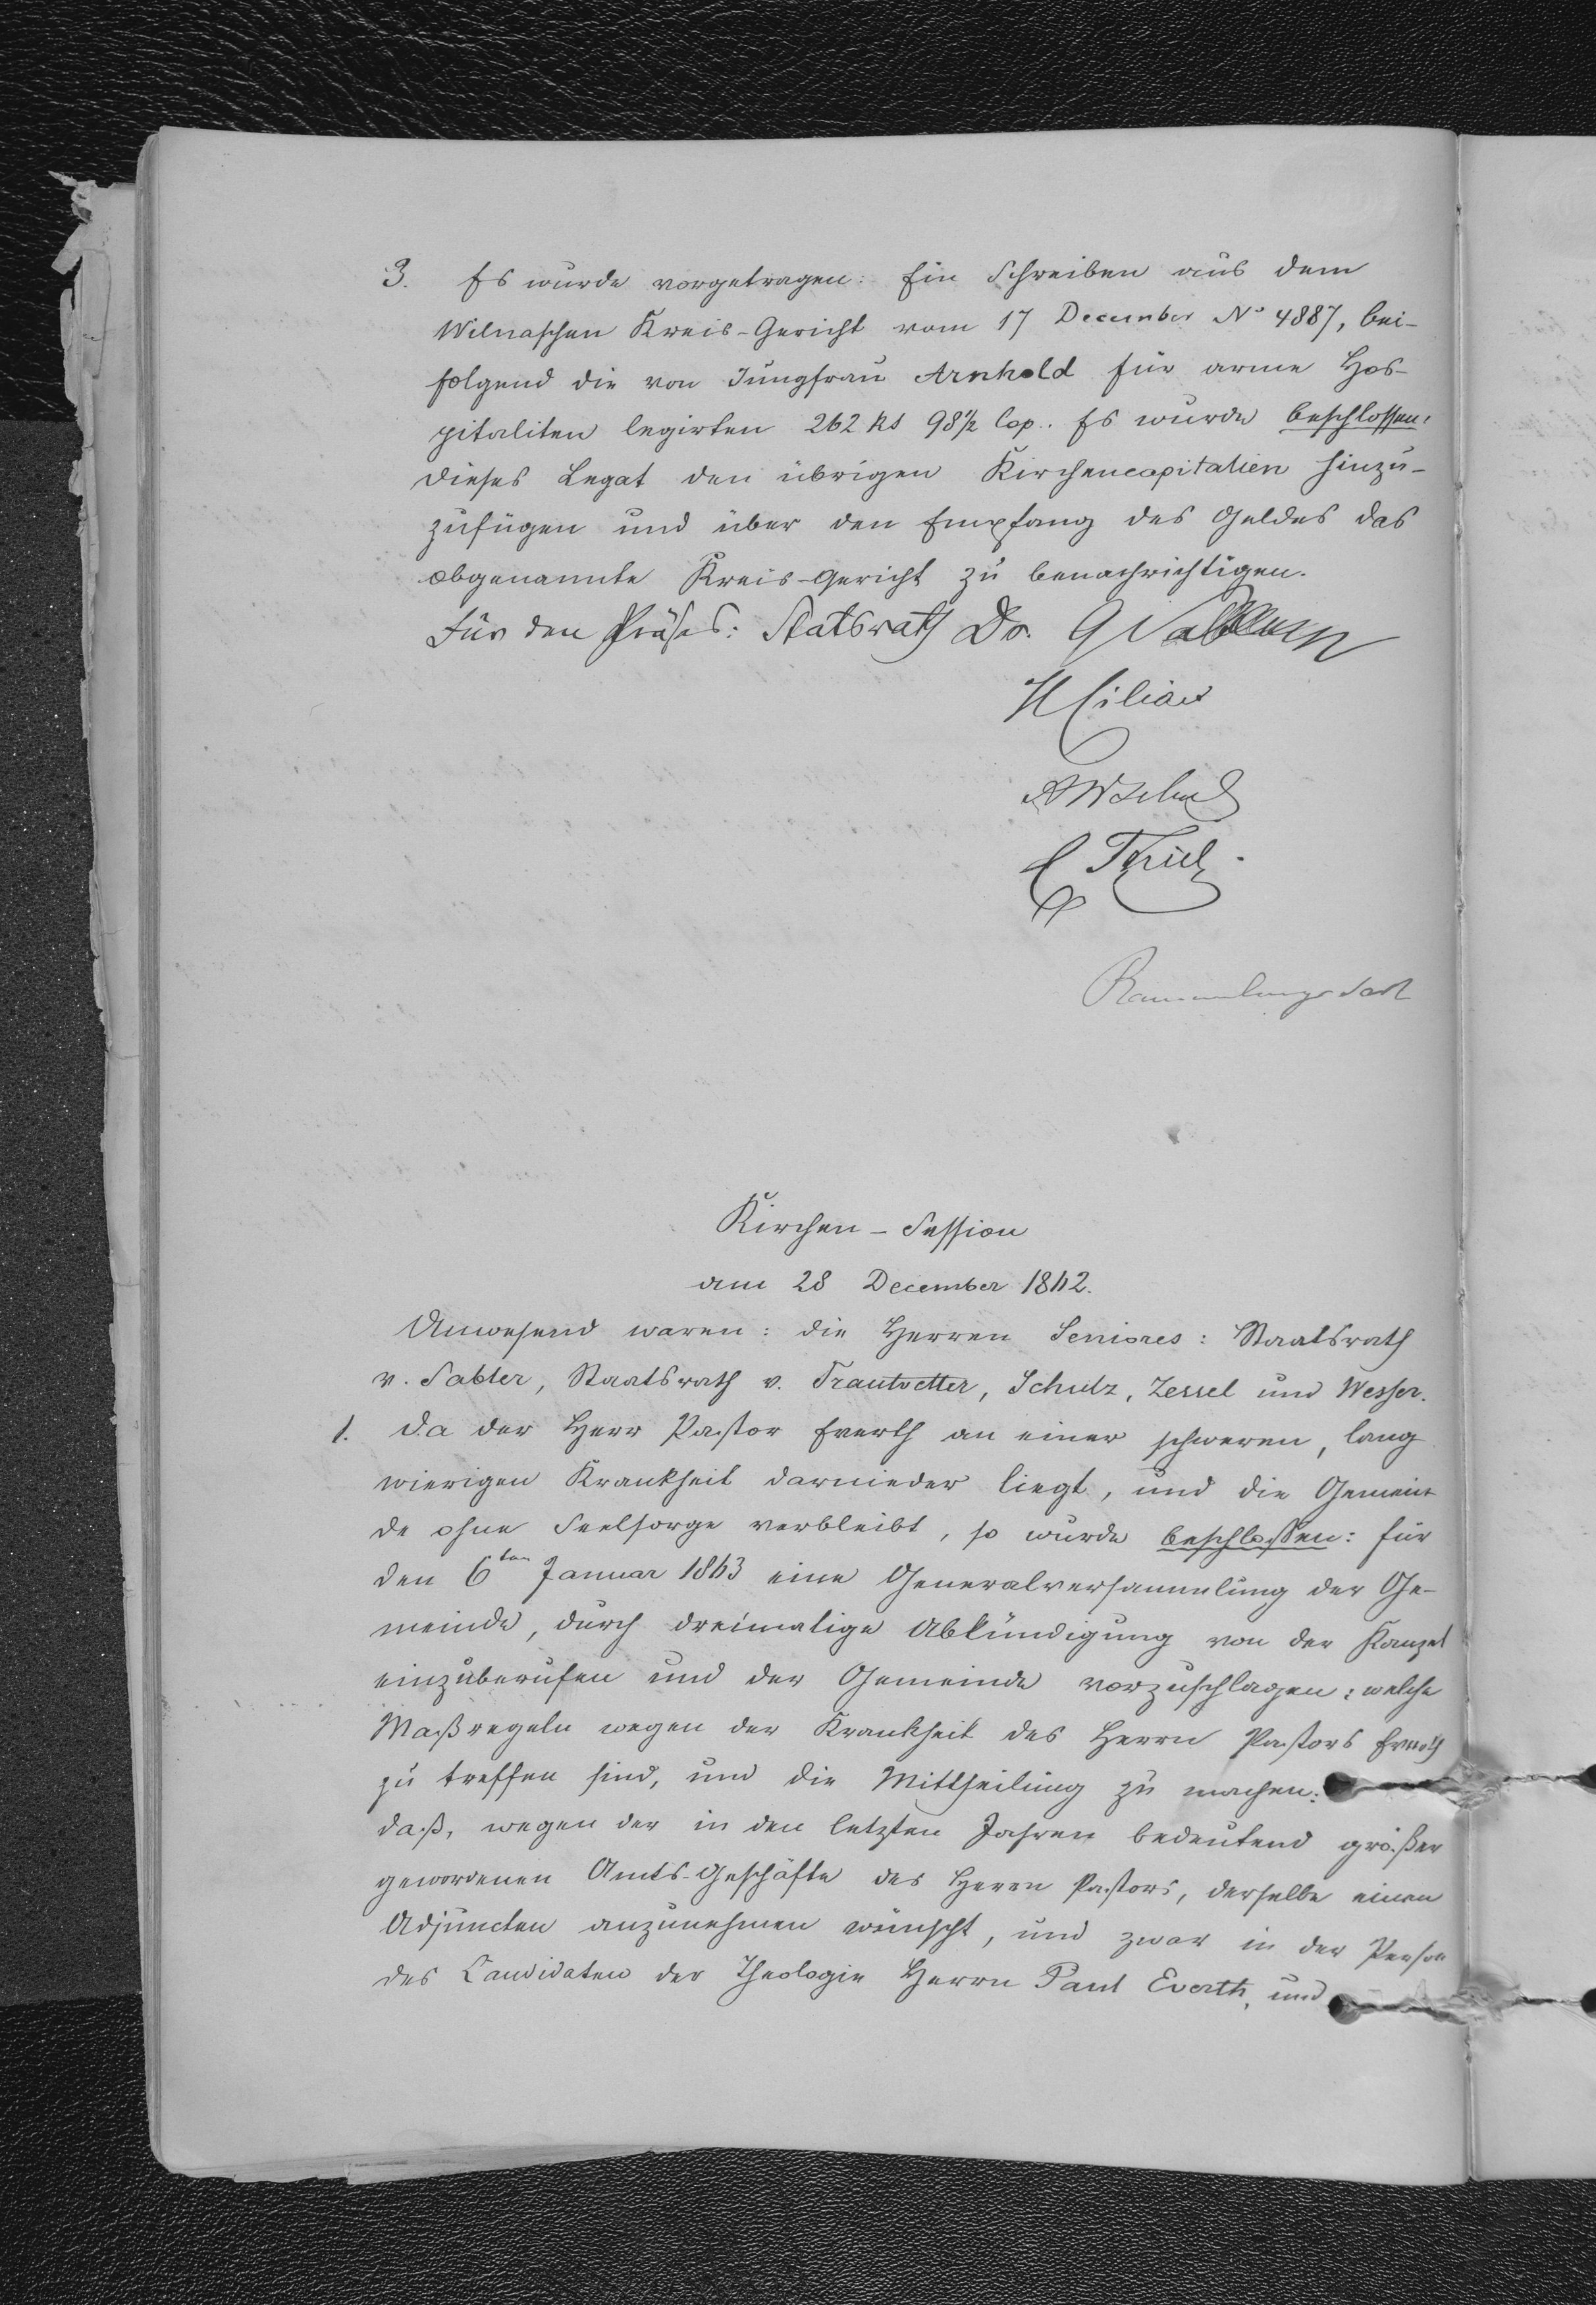 3. Es wurde vorgetragen: Ein Schreiben aus dem
Wilnaschen Kreis-Gericht vom 17 December No 4887, bei-
folgend die von Jungfrau Arnhold für arme Hos-
pitaliten legirten 262 Rs 98 1/2 Cop.. Es wurde beschlossen:
dieses Legat den übrigen Kirchencapitalien hinzu-
zufügen und über den Empfang des Geldes das
obgenannte Kreis-Gericht zu benachrichtigen.
Für den Präses: Statsrath Dr. G
Kirchen-Session
am 28 December 1862.
Anwesend waren: die Herren Seniores: Staatsrath
v. Sabler, Staatsrath v. Trautvetter, Schulz, Zessel und Wesser.
1. Da der Herr Pastor Everth an einer schweren, lang
wierigen Krankheit darnieder liegt, und die Gemein
de ohne Seelsorge verbleibt, so wurde beschlossen: für
den 6ten Januar 1863 eine Generalversammlung der Ge-
meinde, durch dreimalige Abkündigung von der Kanzel
einzuberufen und der Gemeinde vorzuschlagen: welche
Maßregeln wegen der Krankheit des Herrn Pastors Everth
zu treffen sind, und die Mittheilung zu machen:
daß, wegen der in den letzten Jahren bedeutend größer
gewordenen Amts-Geschäfte des Herrn Pastors, derselbe einen
Adjuncten anzunehmen wünscht, und zwar in der Person
des Candidaten der Theologie Herrn Paul Everth, und